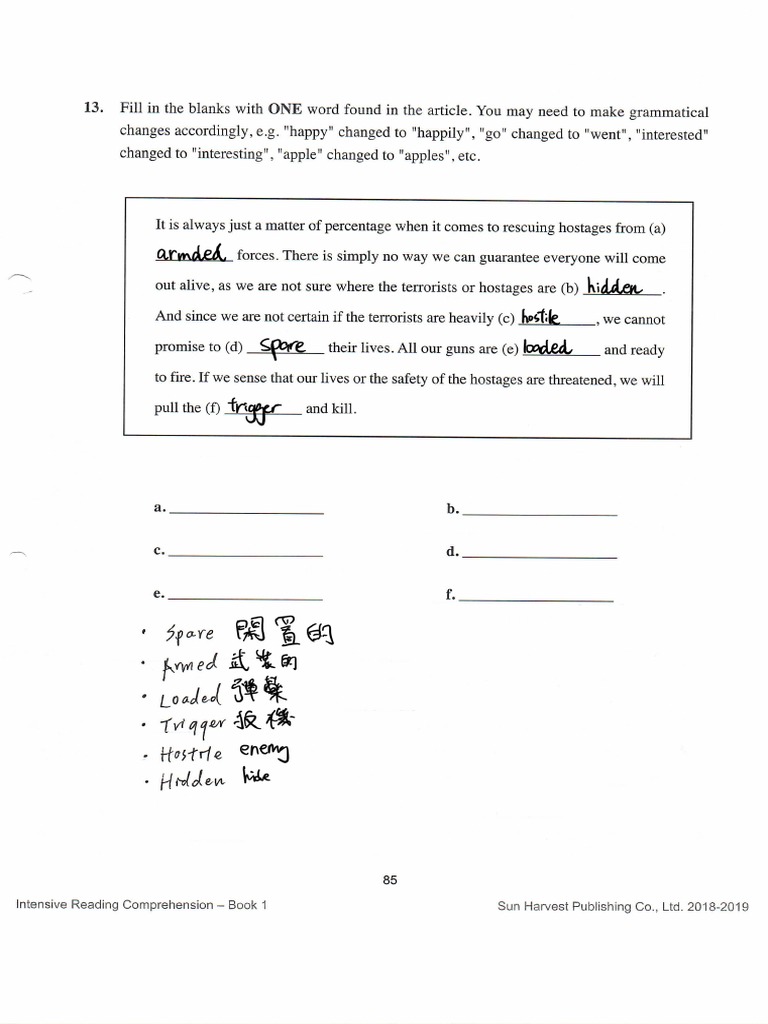 13. Fill in the blanks with ONE word found in the article. You may need to make grammatical
changes accordingly, e.g. "happy" changed to "happily", "go" changed to "went", "interested"
changed to "interesting", "apple" changed to "apples", etc.
It is always just a matter of percentage when it comes to rescuing hostages from (a)
armded forces. There is simply no way we can guarantee everyone will come
out alive, as we are not sure where the terrorists or hostages are (b) hidden.
And since we are not certain if the terrorists are heavily (c) hostile, we cannot
promise to (d) spare their lives. All our guns are (e) loaded and ready
to fire. If we sense that our lives or the safety of the hostages are threatened, we will
pull the (f) trigger and kill.
a. b.
c. d.
e. f.
• Spare 閑置的
• Armed 武裝的
• Loaded 彈藥
• Trigger 扳機
• Hostile enemy
• Hidden hide
85
Intensive Reading Comprehension – Book 1 Sun Harvest Publishing Co., Ltd. 2018-2019